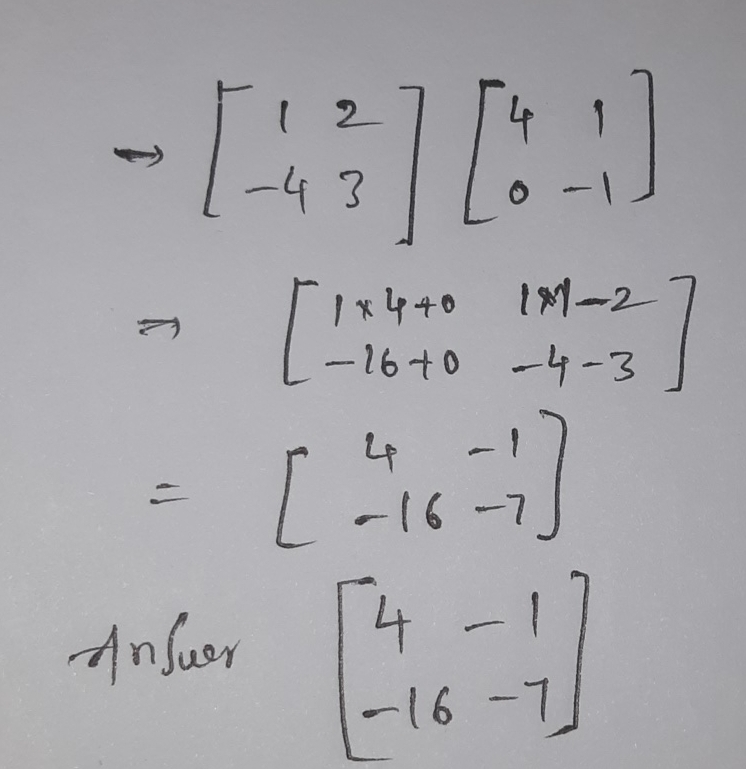 → [ 1 2 ] [ 4 1 ]
[ -4 3 ] [ 0 -1 ]
⇒ [ 1×4+0 1×1-2 ]
[ -16+0 -4-3 ]
= [ 4 -1 ]
[ -16 -7 ]
Answer [ 4 -1 ]
[ -16 -7 ]